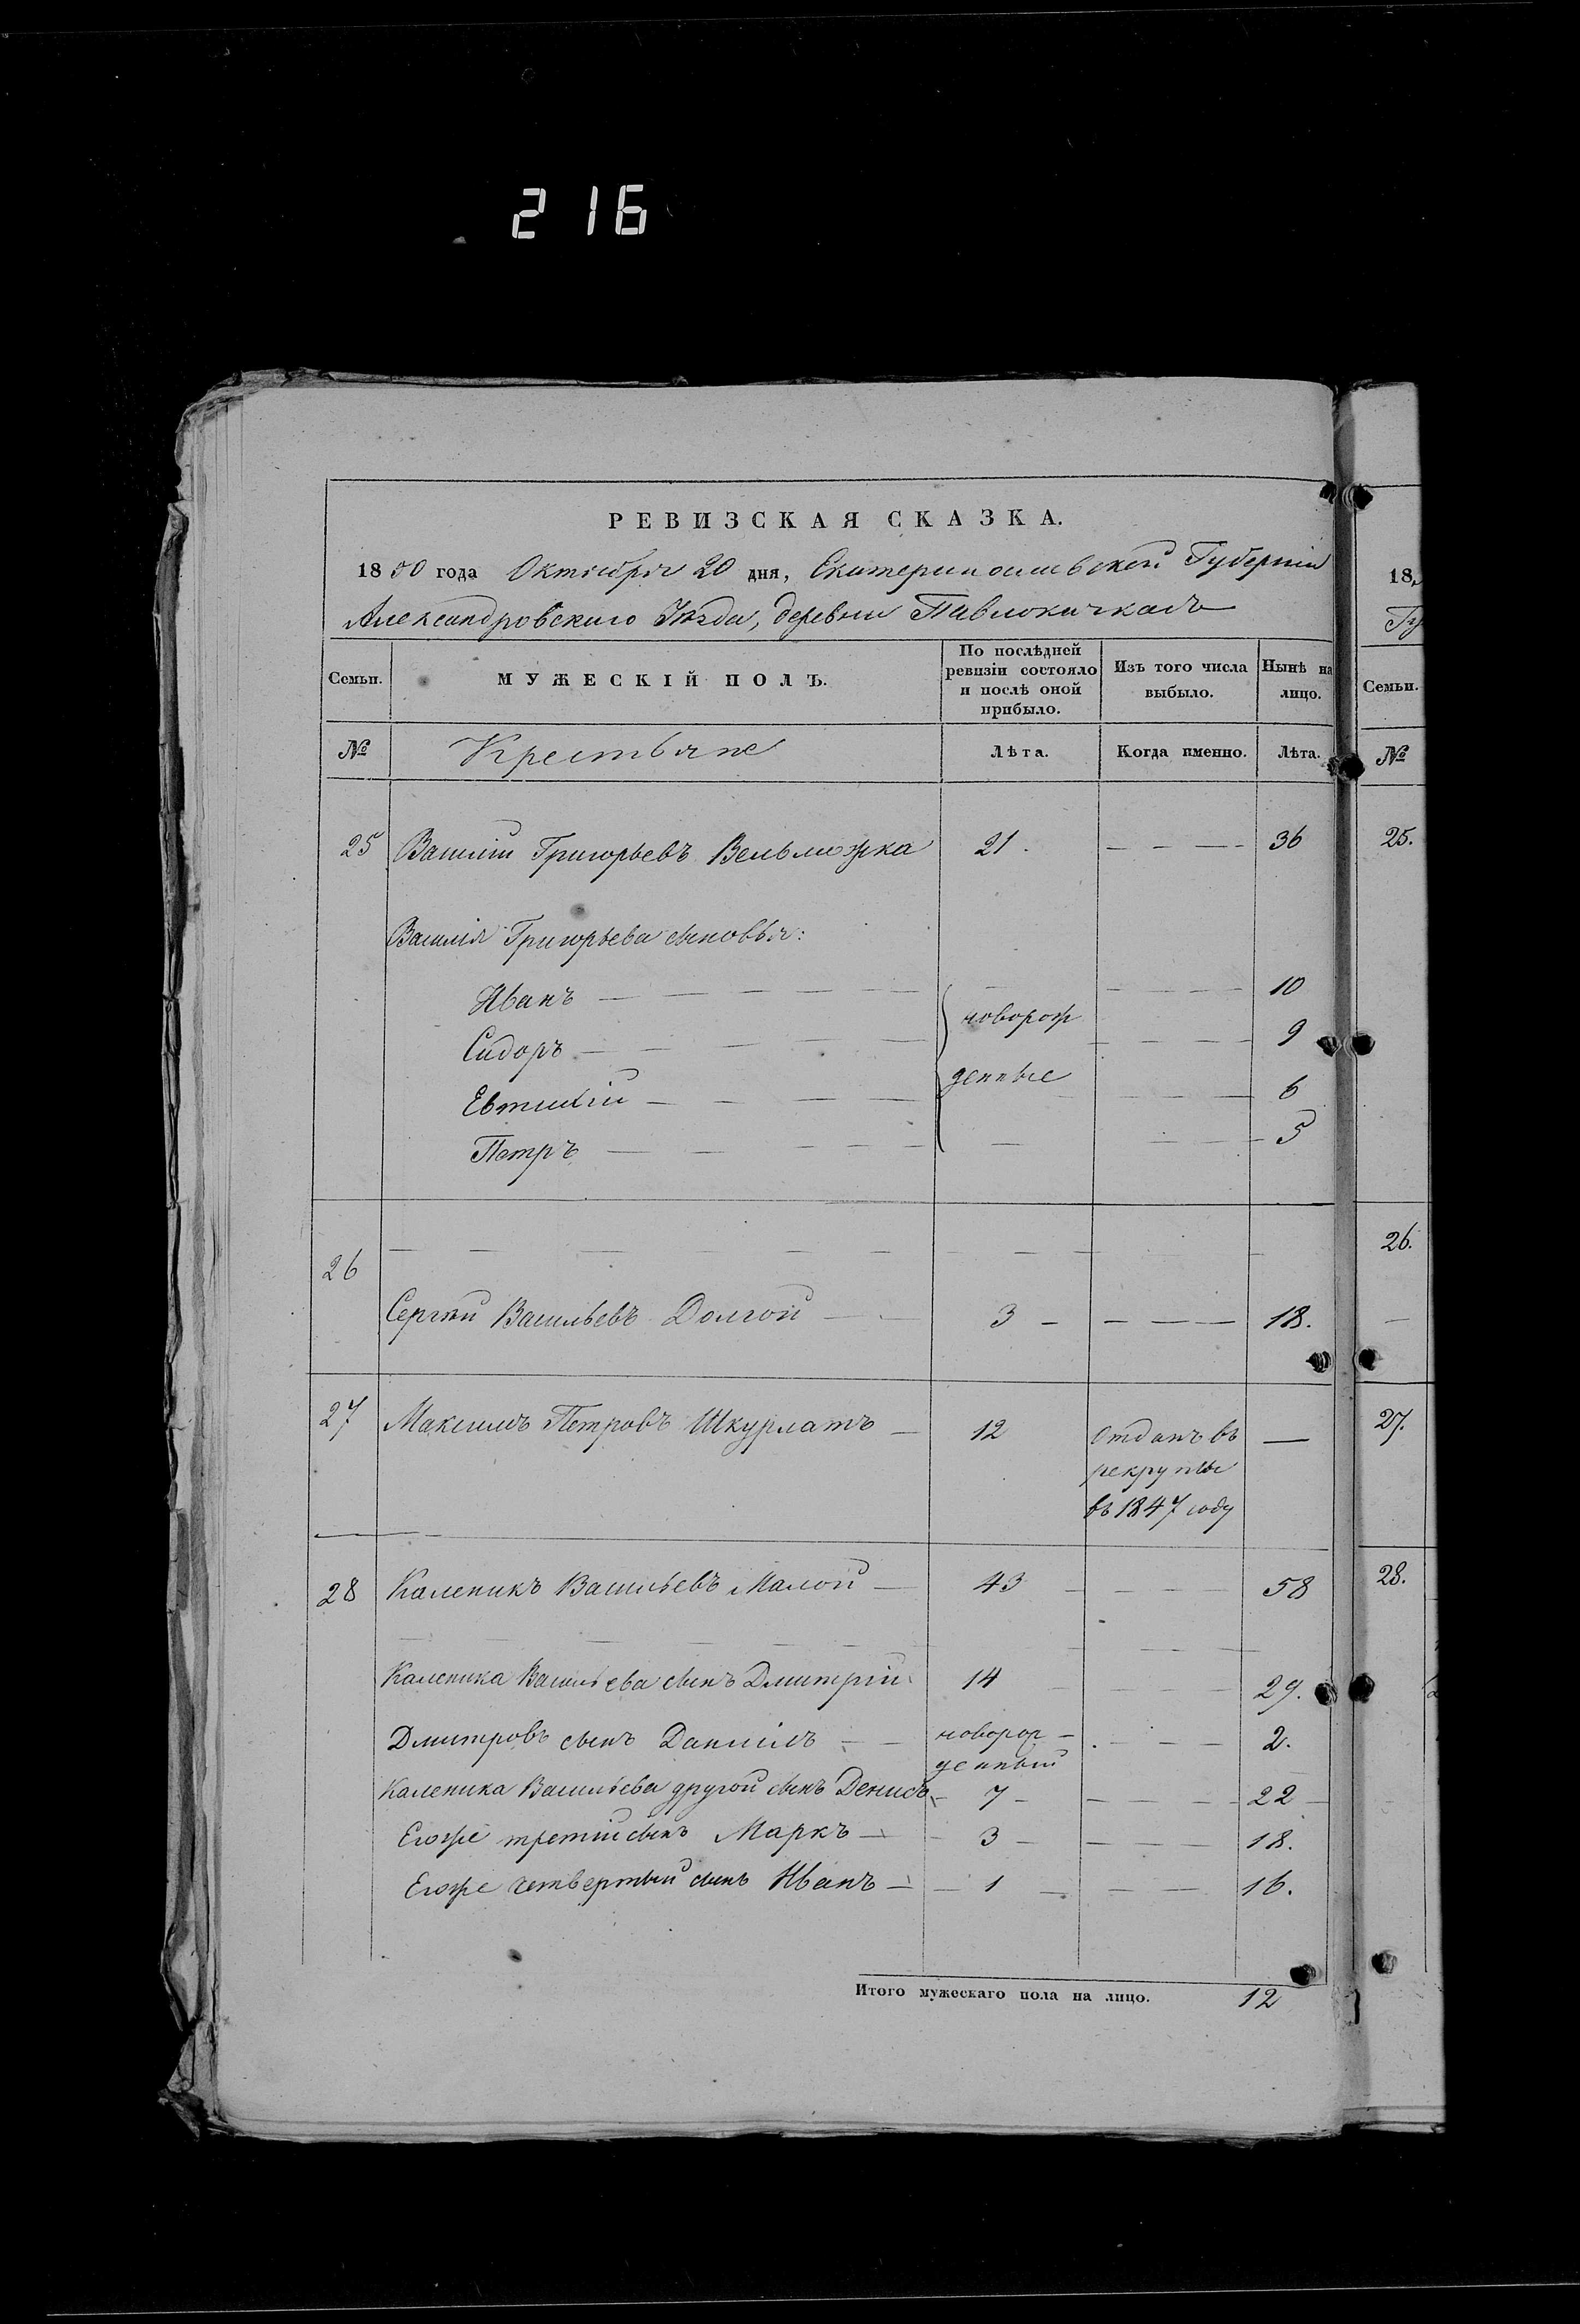 216
РЕВИЗСКАЯ СКАЗКА.
1850 года Октября 20 дня, Екатеринославской Губернии
Александровского Уѣзда, деревни Павлокичкасъ
Семьи. МУЖЕСКІЙ ПОЛЪ. По послѣдней ревизіи состояло и послѣ оной прибыло. Изъ того числа выбыло. Нынѣ на лицо.
№ Крестьяне Лѣта. Когда именно. Лѣта.
25 Василій Григорьевъ Вельможка 21. 36
Василія Григорьева сыновья:
Иванъ 10
новорож
Сидоръ 9
денные
Евтихій 6
Петръ 5
26
Сергѣй Васильевъ Долгой 3 18.
27 Максимъ Петровъ Шкурлатъ 12 Отданъ въ —
рекруты
въ 1847 году
28 Каленикъ Васильевъ Малой 43 58
Каленика Васильева сынъ Дмитрій 14 29.
Дмитровъ сынъ Даниилъ новорож- 2.
денный
Каленика Васильева другой сынъ Денисъ 7 22
Егоже третій сынъ Маркъ 3 18.
Егоже четвертый сынъ Иванъ 1 16.
Итого мужескаго пола на лицо. 12
18
Гу
Семьи.
№
25.
26.
27.
28.